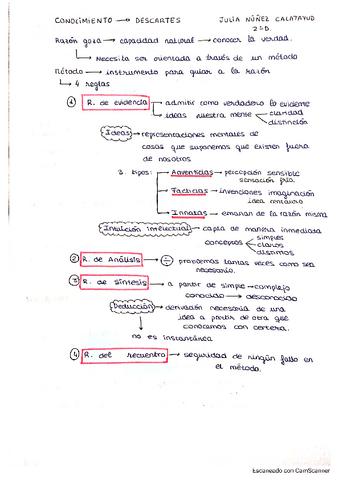 CONOCIMIENTO → DESCARTES JULIA NÚÑEZ CALATAYUD
2ºD.
Razón goza → capacidad natural → conocer la verdad.
↳ Necesita ser orientada a través de un método
Método → instrumento para guiar a la razón
↳ 4 reglas
① R. de evidencia → admitir como verdadero lo evidente
→ ideas nuestra mente claridad
distinción
Ideas → representaciones mentales de
cosas que suponemos que existen fuera
de nosotros
3. tipos: → Adventicias → percepción sensible
sensación fría
→ Facticias → invenciones imaginación
idea centauro
→ Innatas → emanan de la razón misma
Intuición intelectual → capta de manera inmediata
conceptos simples
claros
distintos
② R. de Análisis → ÷ problemas tantas veces como sea
necesario.
③ R. de síntesis → a partir de simple → complejo
conocido → desconocido
Deducción → derivación necesaria de una
idea a partir de otra que
conocemos con certeza.
no es instantánea
④ R. del recuento → seguridad de ningún fallo en
el método.
Escaneado con CamScanner